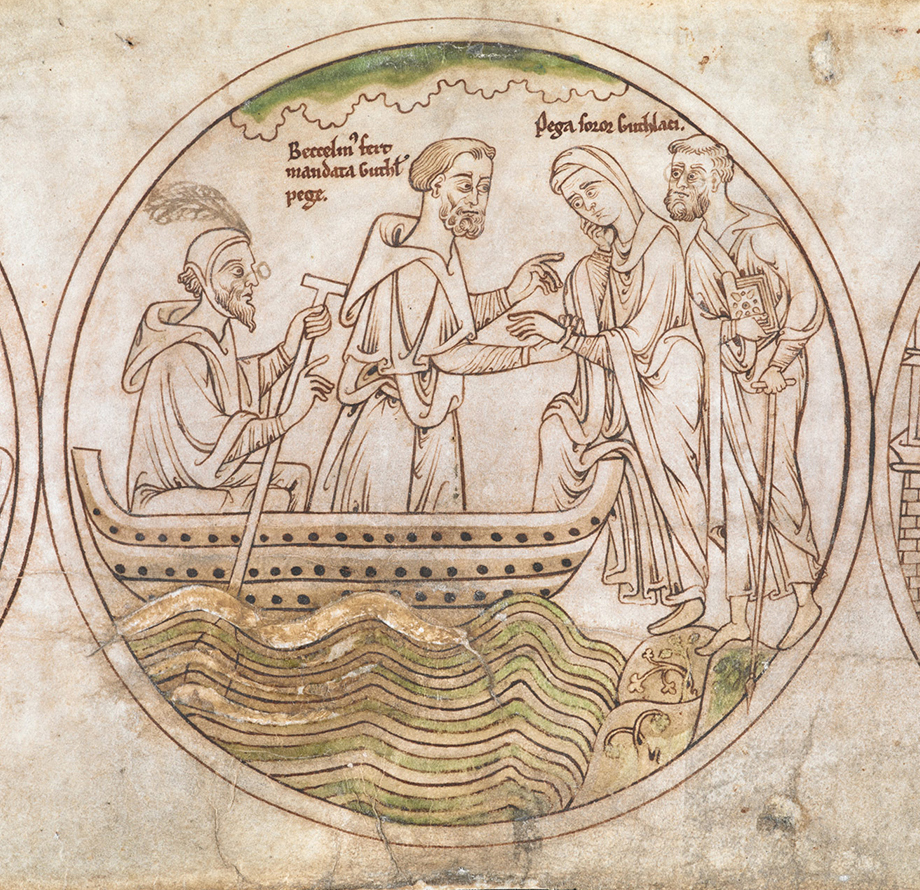 Beccelin' fert
mandata Guthł
pege.
Pega soror Guthlaci.